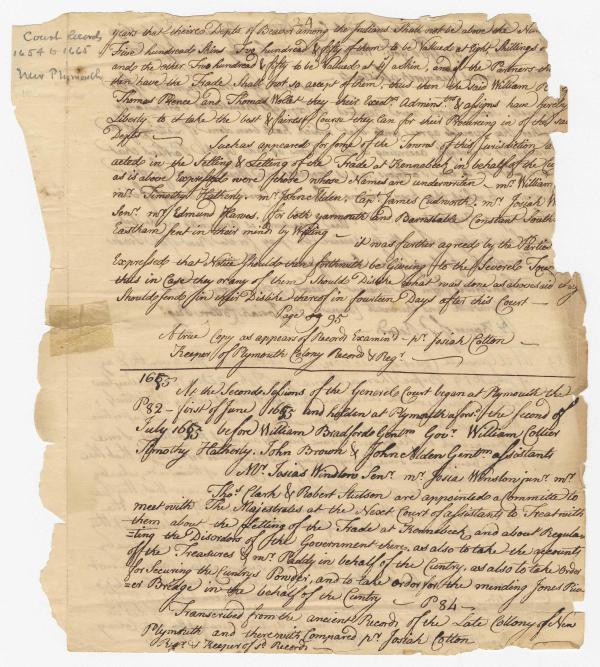 24
Court Records
1654 to 1665
New Plymouth
years that theire Depts of Beaver among the Indians Shall not be above the
Five hundreads Skins Two hundread & fifty of them to be Valued at Eight Shillings
and the other Two hundread & fifty to be Valued at 4/ a skin, and if the Partners
then have the Trade Shall not so accept of them, thus then the said William
Thomas Prence and Thomas Willet they their Execrs Adminrs & assigns have hereby
Liberty to it take the best & fairest Course they Can for their Procureing in of the said
Depts
Such as appeared for some of the Towns of this jurisdiction
acted in the Setting & Letting of the Trade at Kennabeck in behalf of the
as is above Expressed were those whose Names are underwriten - mr William
mr Timothy Hatherly. mr John Alden, Capt James Cudworth, mr Josiah
Senr mr Edmund Hawes, for both yarmouth and Barnstable Constant South
Eastham sent in their mind by Writing -
it was further agreed by the Parties
Expressed that Notice Should then forthwith be Giveing to the Severel Town
thus in Case they or any of them Should Dislike what was done as abovesaid they
Should send in their Dislike thereof in fourteen Days after this Court -
Page 95
A true Copy as appears of Record Examind - pr Josiah Cotton
Keeper of Plymouth Colony Record & Regr
1655
At the Second Sessions of the Generel Court began at Plymouth the
P82 - first of June 1655 and holden at Plymouth aforsd the second of
July 1655 before William Bradforde Gentm Govr William Collier
Timothy Hatherly, John Brown & John Alden Gentm assistants
Mr. Josias Winslow Senr mr Josia Winslow junr mr
Thos Clark & Robert Stutson are appointed a Committe to
meet with The Majestrates at the Next Court of assistants to Treat with
them about the setting of the Trade at Kennebeck and about Regula-
-ting the Disorders of the Government there, as also to take the accounts
of the Treasurer & mr Paddy in behalf of the Cuntry, as also to take Order
for Securing the Cuntrys Powder, and to take order for the mending Jones Riv-
-er Bridge in the behalf of the Cuntry - P84 -
Transcribed from the ancient Records of the Late Collony of New
Plymouth and therewith Compared pr Josiah Cotton
Regr & Keeper of sd Records -